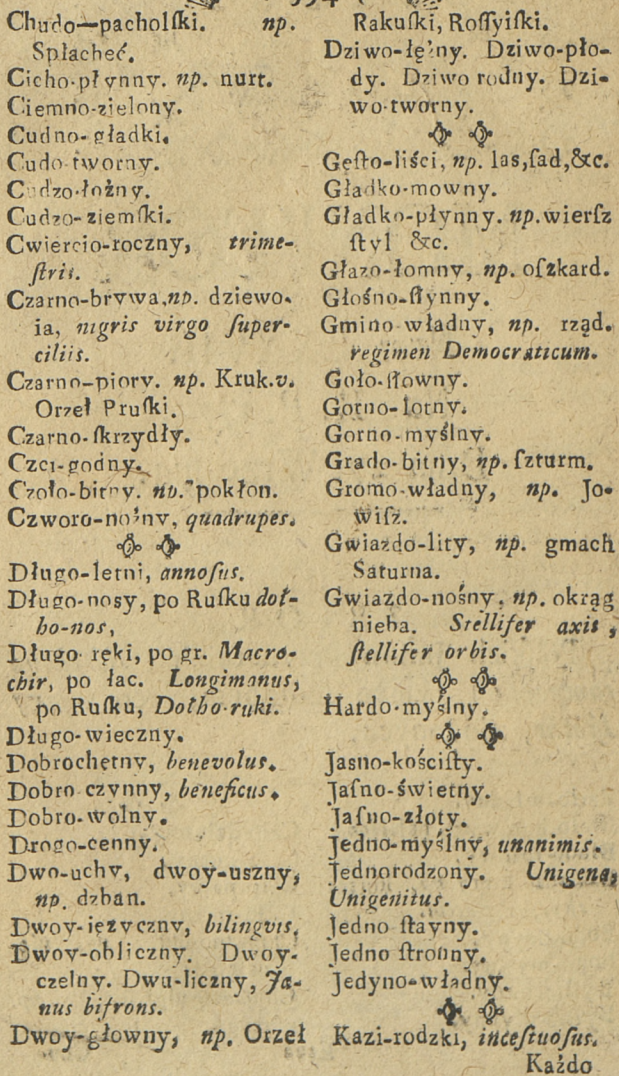 Chudo—pacholſki. np.
Spłacheć.
Cicho-płynny. np. nurt.
Ciemno-zielony.
Cudno-gładki.
Cudo-tworny.
Cudzo-łożny.
Cudzo-ziemſki.
Cwiercio-roczny, trime-
ſtris.
Czarno-brywa, np. dziewo-
ia, nigris virgo ſuper-
ciliis.
Czarno-piory. np. Kruk. v.
Orzeł Pruſki.
Czarno-ſkrzydły.
Czci-godny.
Czoło-bitny. np. pokłon.
Czworo-nożny, quadrupes.
Długo-letni, annoſus.
Długo-noſy, po Ruſku doł-
ho-nos,
Długo-ręki, po gr. Macro-
chir, po łac. Longimanus,
po Ruſku, Dołho-ruki.
Długo-wieczny.
Dobrochętny, benevolus.
Dobro czynny, beneficus.
Dobro-wolny.
Drogo-cenny.
Dwo-uchy, dwoy-uszny,
np. dzban.
Dwoy-ięzyczny, bilingvis.
Dwoy-obliczny. Dwoy-
czelny. Dwu-liczny, Ja-
nus bifrons.
Dwoy-głowny, np. Orzeł
Rakuſki, Roſſyiſki.
Dziwo-lężny. Dziwo-pło-
dy. Dziwo rodny. Dzi-
wo-tworny.
Gęſto-liści, np. las, ſad, &c.
Gładko-mowny.
Gładko-płynny. np. wierſz
ſtyl &c.
Głazo-łomny, np. oſzkard.
Głośno-ſłynny.
Gmino władny, np. rząd.
regimen Democraticum.
Goło-ſłowny.
Gorno-lotny.
Gorno-myślny.
Grado-bitny, np. ſzturm.
Gromo-władny, np. Jo-
wiſz.
Gwiazdo-lity, np. gmach
Saturna.
Gwiazdo-nośny, np. okrąg
nieba. Stellifer axis,
ſtellifer orbis.
Hardo-myślny.
Jasno-kościſty.
Jaſno-świetny.
Jaſno-złoty.
Jedno-myślny, unanimis.
Jednorodzony. Unigena,
Unigenitus.
Jedno ſtayny.
Jedno ſtronny.
Jedyno-władny.
Kazi-rodzki, inceſtuoſus.
Każdo